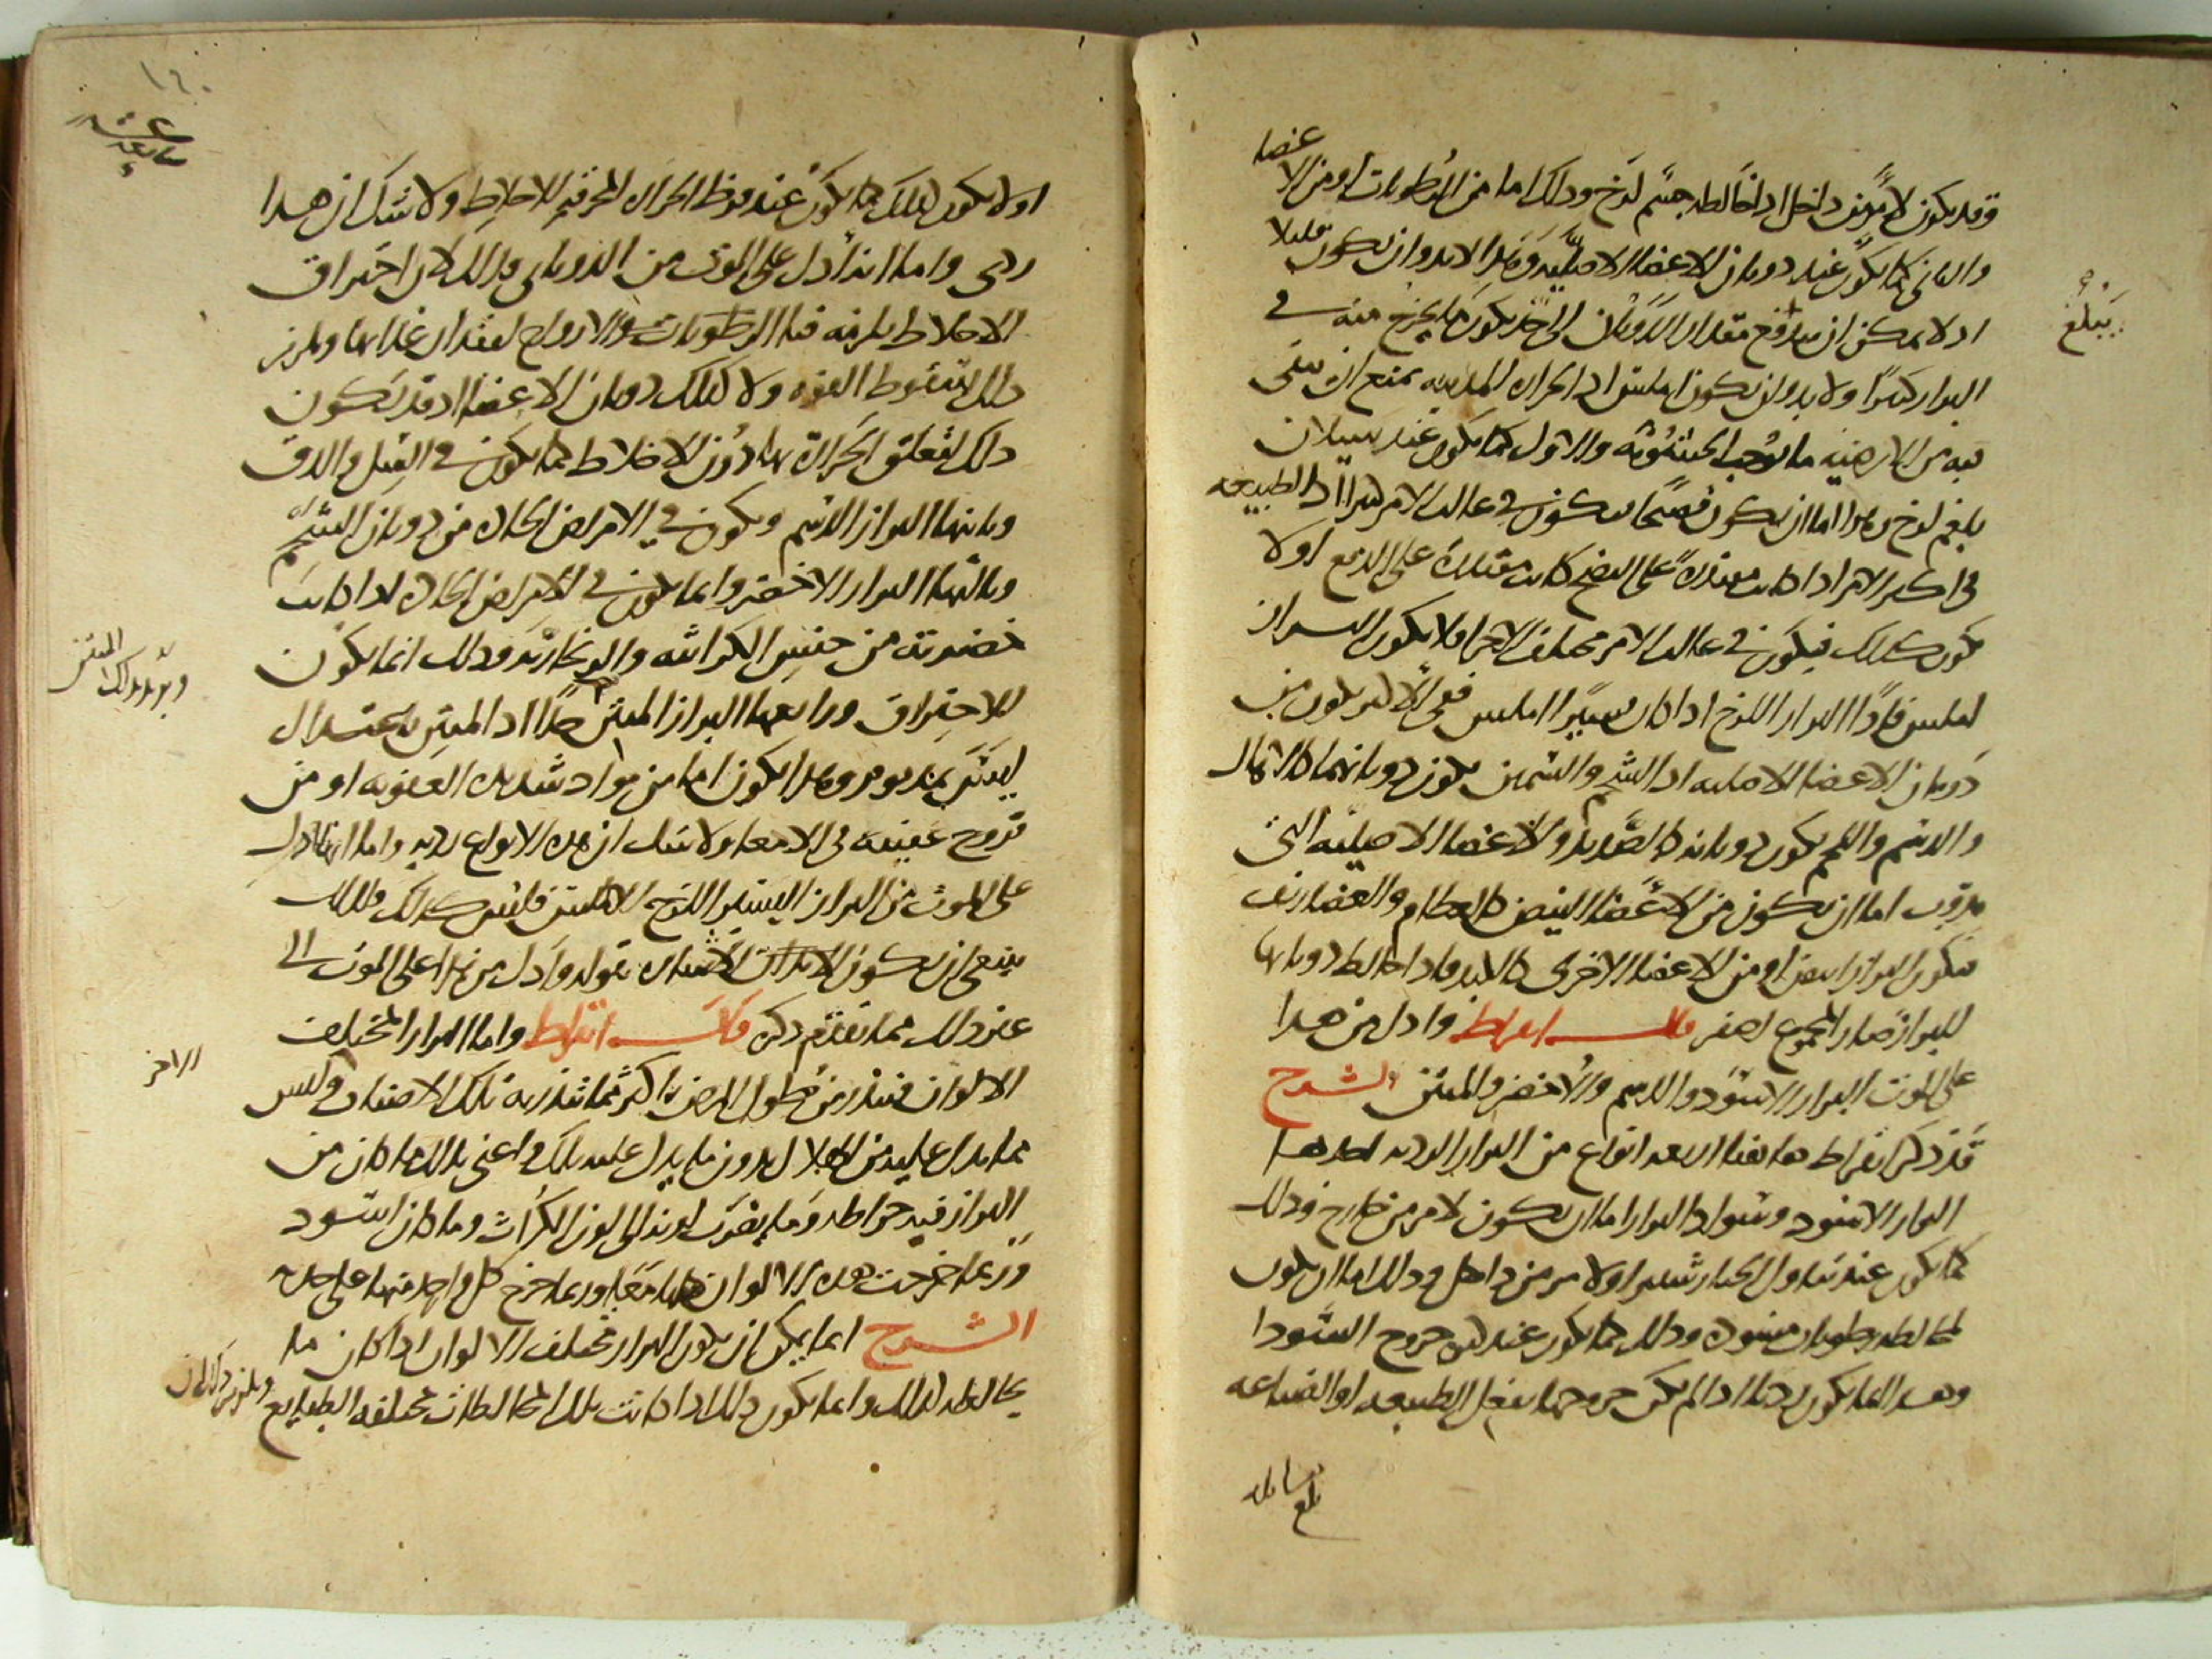 وقد يكون لامر من داخل اذا خالطه جسم لزج وذلك اما من الرطوبات او من الاعضا
والثانى كما يكون عند ذوبان الاعضا الاصلية وهذا لابد وان يكون قليلا
اذ لا يمكن ان يبلغ مقدار الذوبان الى حد يكون ما يخرج منه فى
يبلغ
البراز كثيرا ولا بد وان يكون املس اذ الحرارة المذيبة تمنع ان يبقى
فيه من الارضية ما يوجب الخشونة والاول كما يكون عند سيلان
بلغم لزج وهذا اما ان يكون نضجا فيكون فى غالب الامر اذ الطبيعه
فى اكثر الامر اذا كانت مقتدرة على النضج كانت مقتدرة على الدفع اولا
يكون كذلك فيكون فى غالب الامر مختلف الاجزا فلا يكون البراز
املس فاذا البراز اللزج اذا كان يسيرا املس ففى الاكثر يكون من
ذوبان الاعضا الاصليه اذ الشحم والسمين يكون ذوبانهما كالاهال
والدسم واللحم يكون ذوبانه كالصديد والاعضا الاصلية التى
يذوب اما ان يكون من الاعضا البيض كالعظام والغضاريف
فيكون البراز ابيض او من الاعضا الاخرى كالكبد فاذا خالط ذوبانها
للبراز صار المجموع اصفر قال ابقراط وادل من هذا
على الموت البراز الاسود والدسم والاخضر والمنتن الشرح
قد ذكر ابقراط هاهنا اربعه انواع من البراز الرديه احدها
البراز الاسود وسواد البراز اما ان يكون لامر من خارج وذلك
كما يكون عند تناول الخيار شنبر او لامر من داخل وذلك اما ان يكون
لمخالطه رطوبات مسودة وذلك كما يكون عند خروج السودا
وهذا انما يكون رديا اذا لم يكن خروجها بفعل الطبيعه او الصناعه
بلغ مقابله
اولا يكون كذلك كما يكون عند فرط الحراره المحرقه للاخلاط ولا شك ان هذا
ردى واما انه ادل على الموت من الذوبانى فذلك لان احتراق
الاخلاط يلزمه فنا الرطوبات والارواح لفقدان غذائها ويلزم
ذلك سقوط القوه ولا كذلك ذوبان الاعضا اذ قد يكون
ذلك لتعلق الحرارة بها دون الاخلاط كما يكون فى السل والدق
وثانيها البراز الدسم ويكون فى الامراض الحاده من ذوبان الشحم
وثالثها البراز الاخضر وانما يكون فى الامراض الحاده اذا كانت
خضرته من جنس الكراثيه والزنجاريه وذلك انما يكون
للاحتراق ورابعها البراز المنتن جدا اذ المنتن باعتدال
ليس بمذموم وهذا يكون اما من مواد شديده العفونه او من
قروح عفينه فى الامعا ولا شك ان هذه الانواع رديه واما انها ادل
على الموت من البراز اليسير اللزج الاملس فليس كذلك فلذلك
ينبغى ان يكون الاشاره بقوله وادل من هذا على الموت الى
غير ذلك مما تقدم ذكره قال ابقراط واما البراز المختلف
الالوان فينذر من طول المرض باكثر مما تنذر به تلك الاصناف وليس
مما يدل عليه من الهلاك بدون ما يدل عليه تلك واعنى بذلك ما كان من
البراز فيه خراطه وما يضرب لونه الى لون الكراث وما كان اسود
وربما خرجت هذه الالوان كلها معا وربما خرج كل واحد منها على حده
الشرح انما يمكن ان يكون البراز مختلف الالوان اذا كان ما
يخالطه كذلك وانما يكون ذلك اذا كانت تلك المخالطات مختلفه الطبايع ويلزم ذلك ان